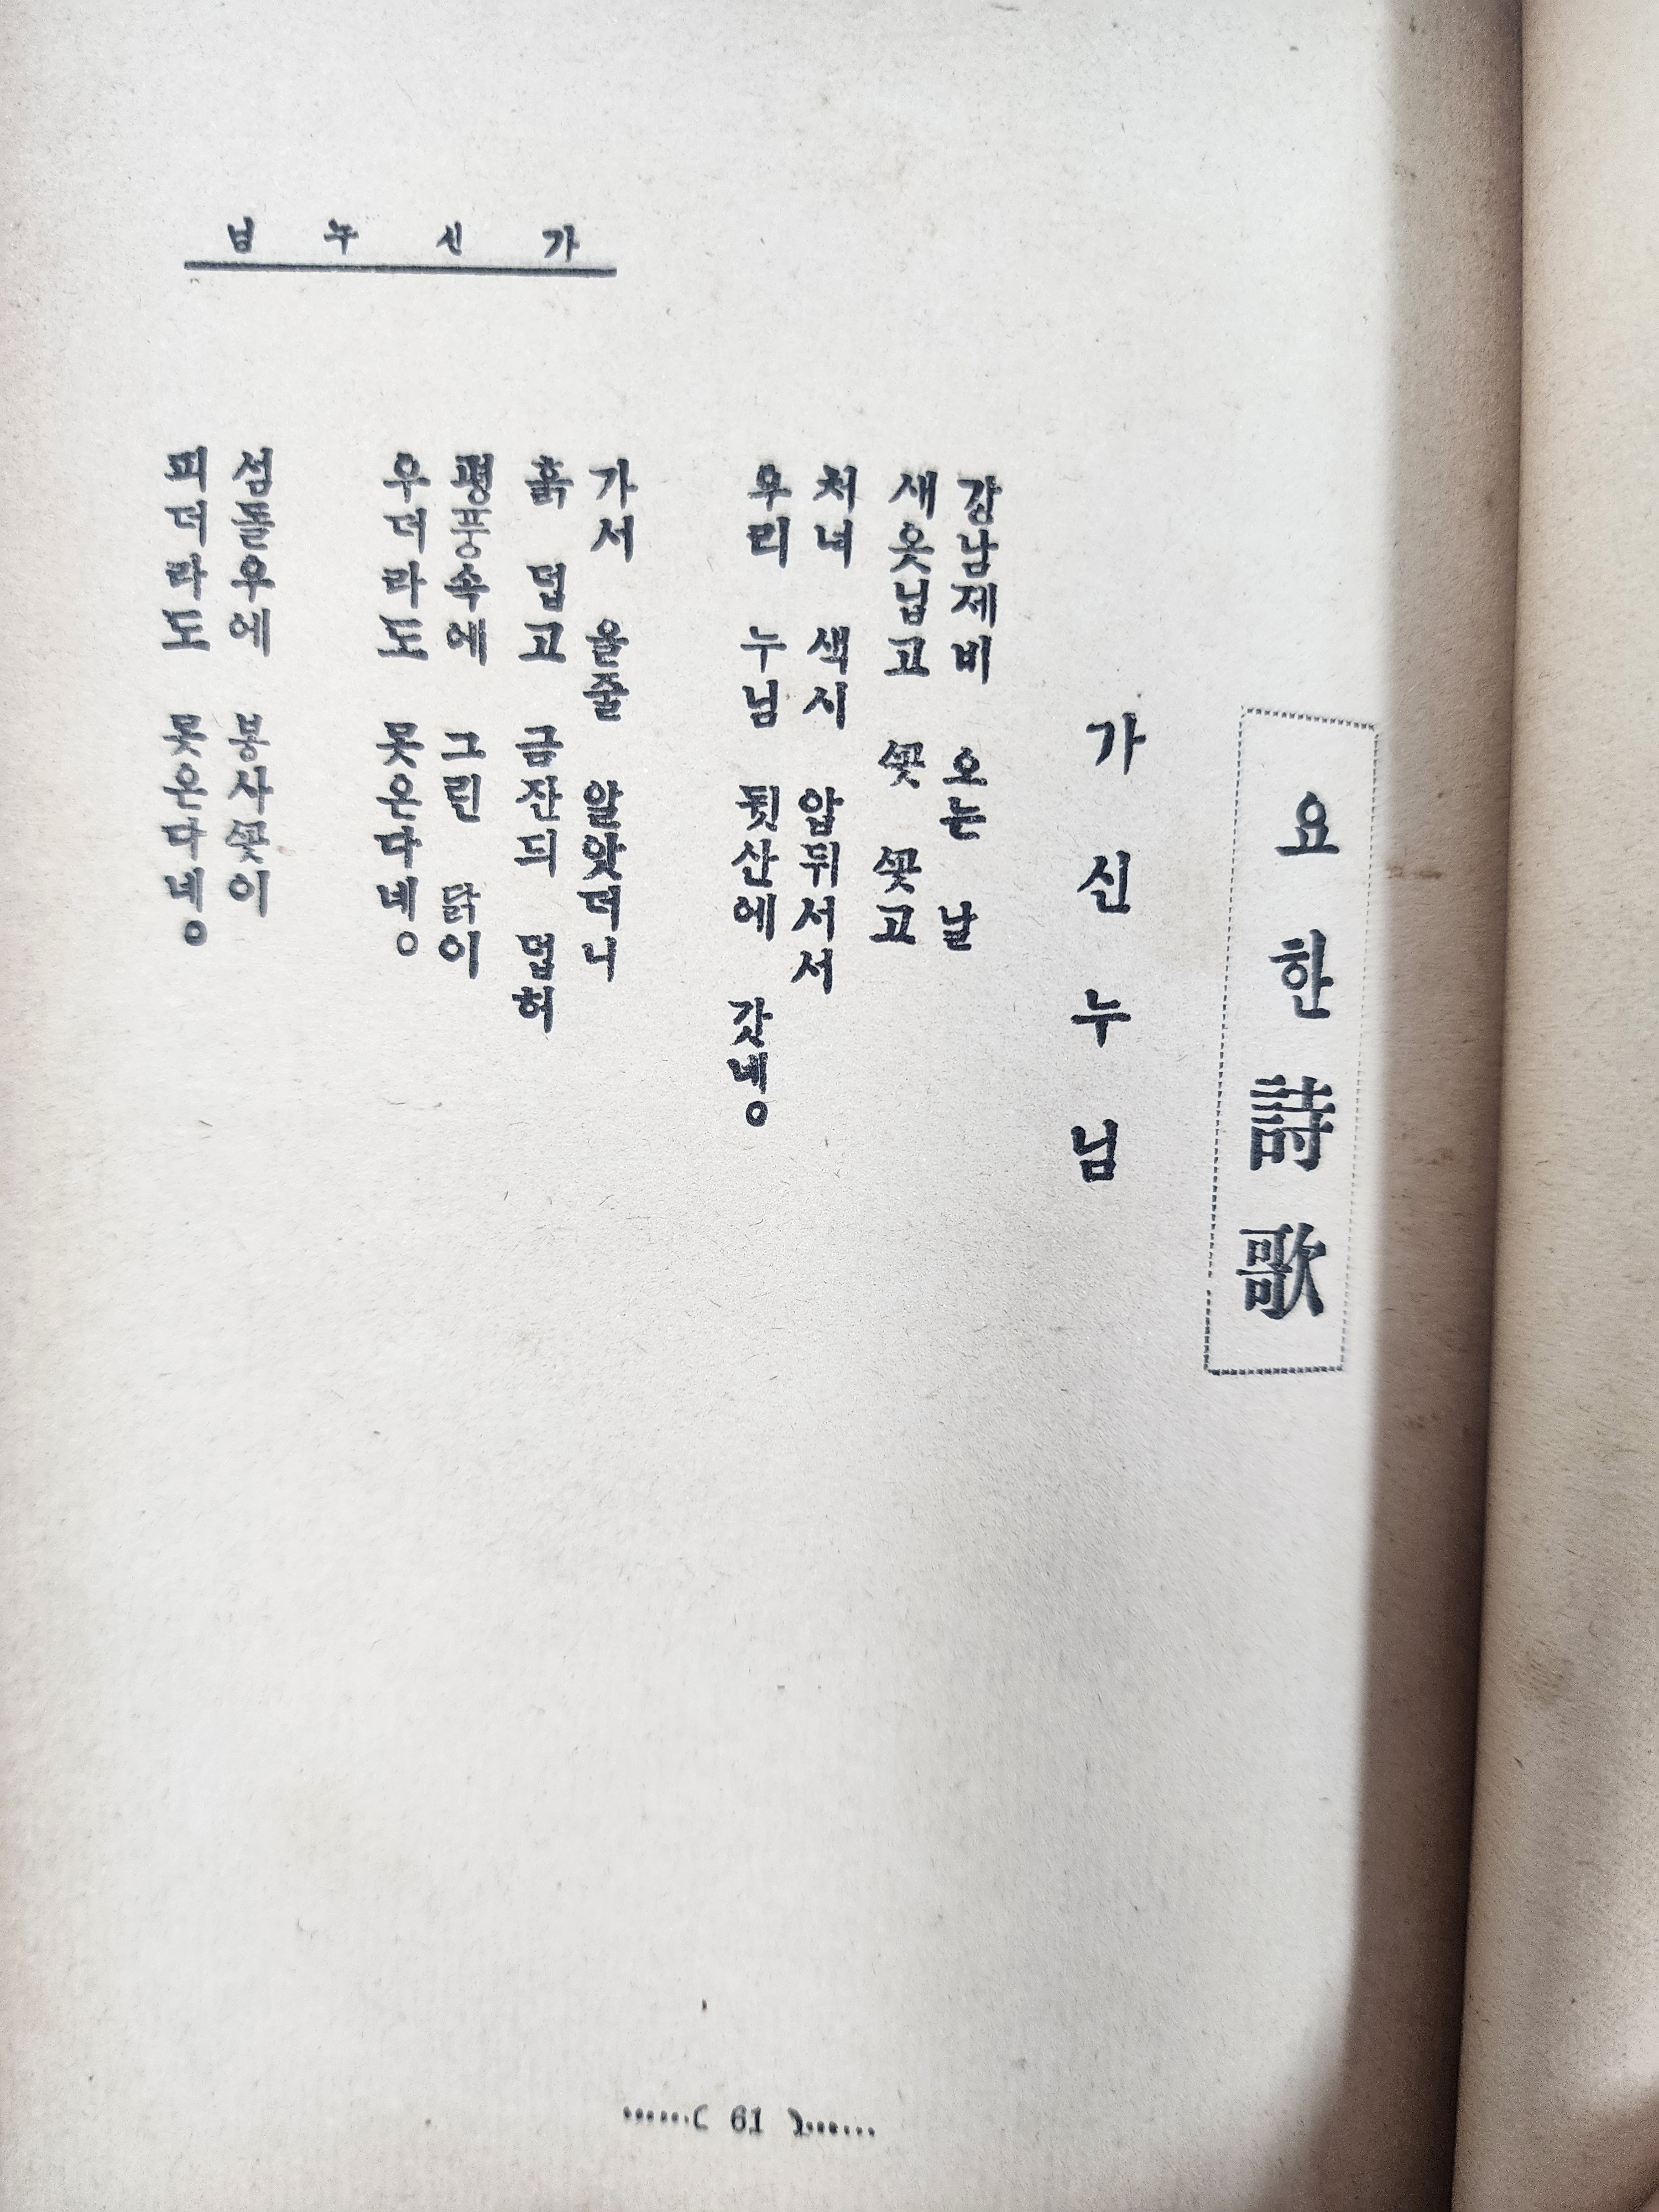 가신누님
요한 詩歌
가신누님
강남제비 오는 날
새옷닙고 ᄭᅩᆺ ᄭᅩᆺ고
처녀 색시 압뒤서서
우리 누님 뒷산에 갓네。
가서 올줄 알앗더니
흙 덥고 금잔듸 덥허
평풍속에 그린 닭이
우더라도 못온다네。
섬돌우에 봉사ᄭᅩᆺ이
피더라도 못온다네。
……( 61 )……